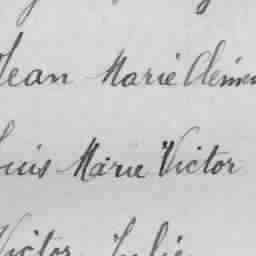 Jean Marie Clémen
Louis Marie Victor
Victor Julie